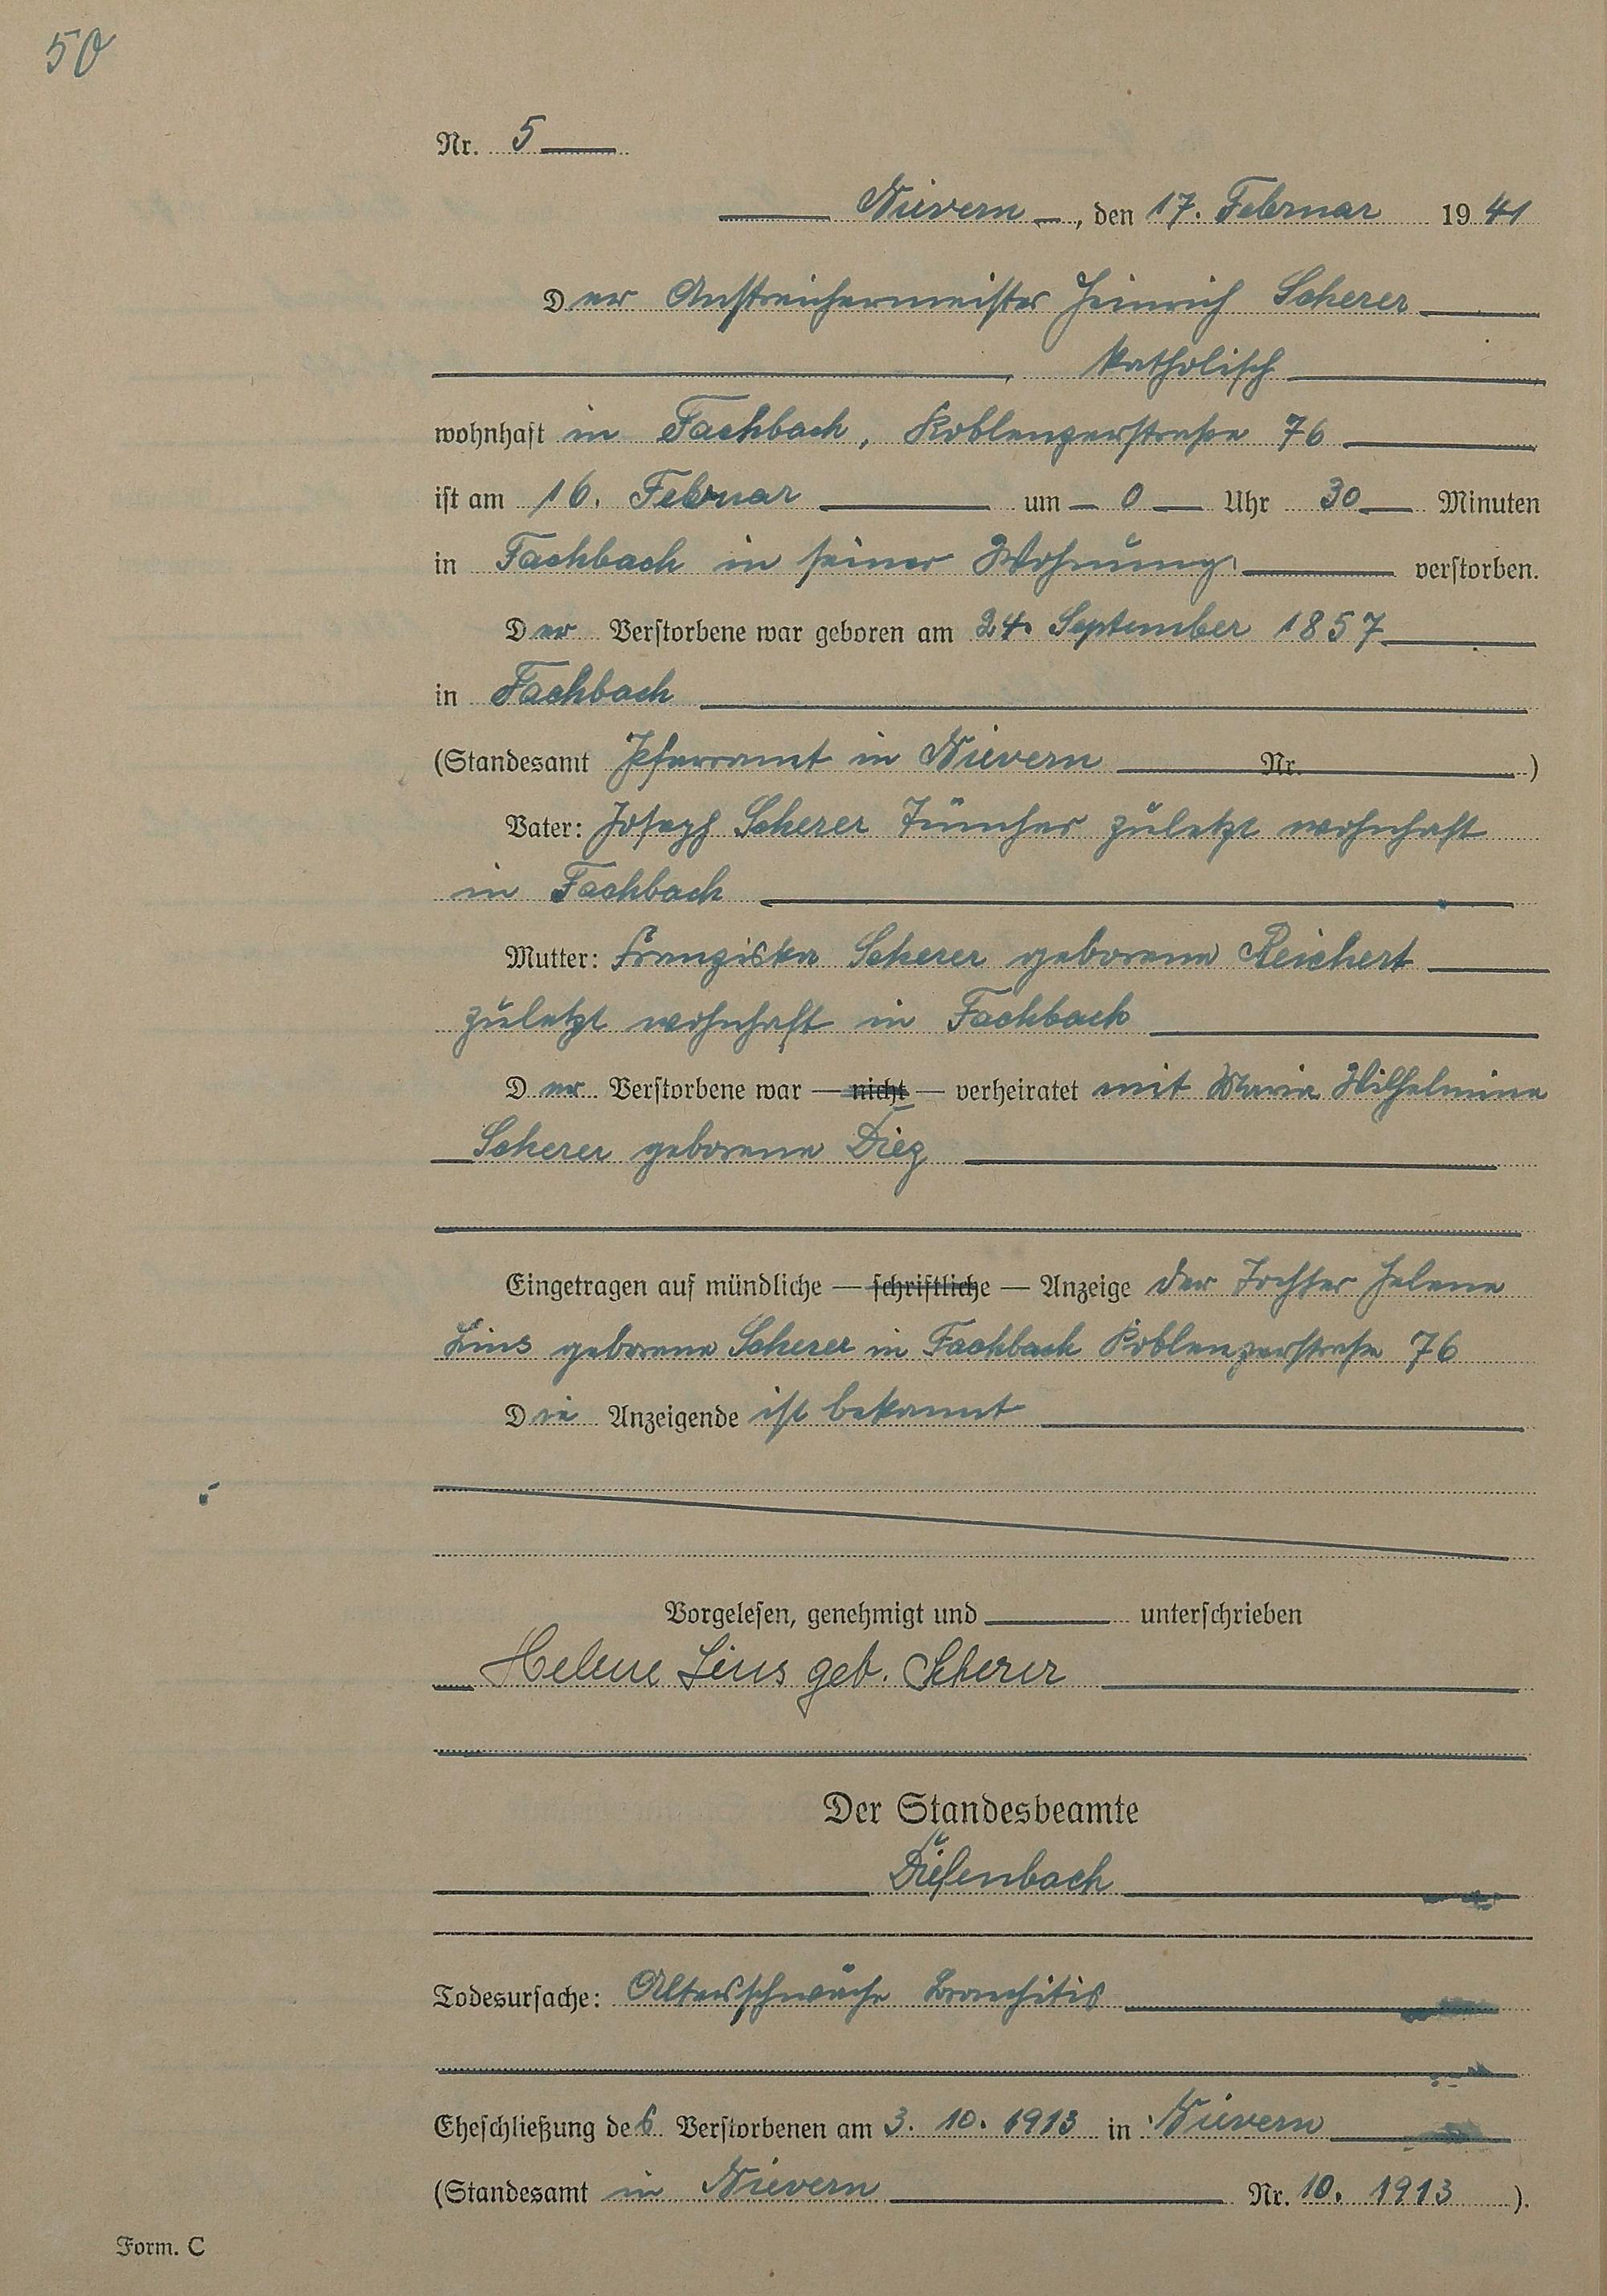 50
Nr. 5
Nievern, den 17. Februar 1941
Der Anstreichermeister Heinrich Scherer
katholisch
wohnhaft in Fachbach, Koblenzerstraße 76
ist am 16. Februar um 0 Uhr 30 Minuten
in Fachbach in seiner Wohnung verstorben.
Der Verstorbene war geboren am 24. September 1857
in Fachbach
(Standesamt Pfarramt in Nievern Nr. )
Vater: Joseph Scherer Tüncher zuletzt wohnhaft
in Fachbach
Mutter: Franziska Scherer geborene Reichert
zuletzt wohnhaft in Fachbach
Der Verstorbene war — nicht — verheiratet mit Maria Wilhelmine
Scherer geborene Diez
Eingetragen auf mündliche — schriftliche — Anzeige der Tochter Helene
Lins geborene Scherer in Fachbach Koblenzerstraße 76
Die Anzeigende ist bekannt
Vorgelesen, genehmigt und unterschrieben
Helene Lins geb. Scherer
Der Standesbeamte
Diefenbach
Todesursache: Altersschwäche Bronchitis
Eheschließung des Verstorbenen am 3. 10. 1913 in Nievern
(Standesamt in Nievern Nr. 10. 1913 ).
Form. C